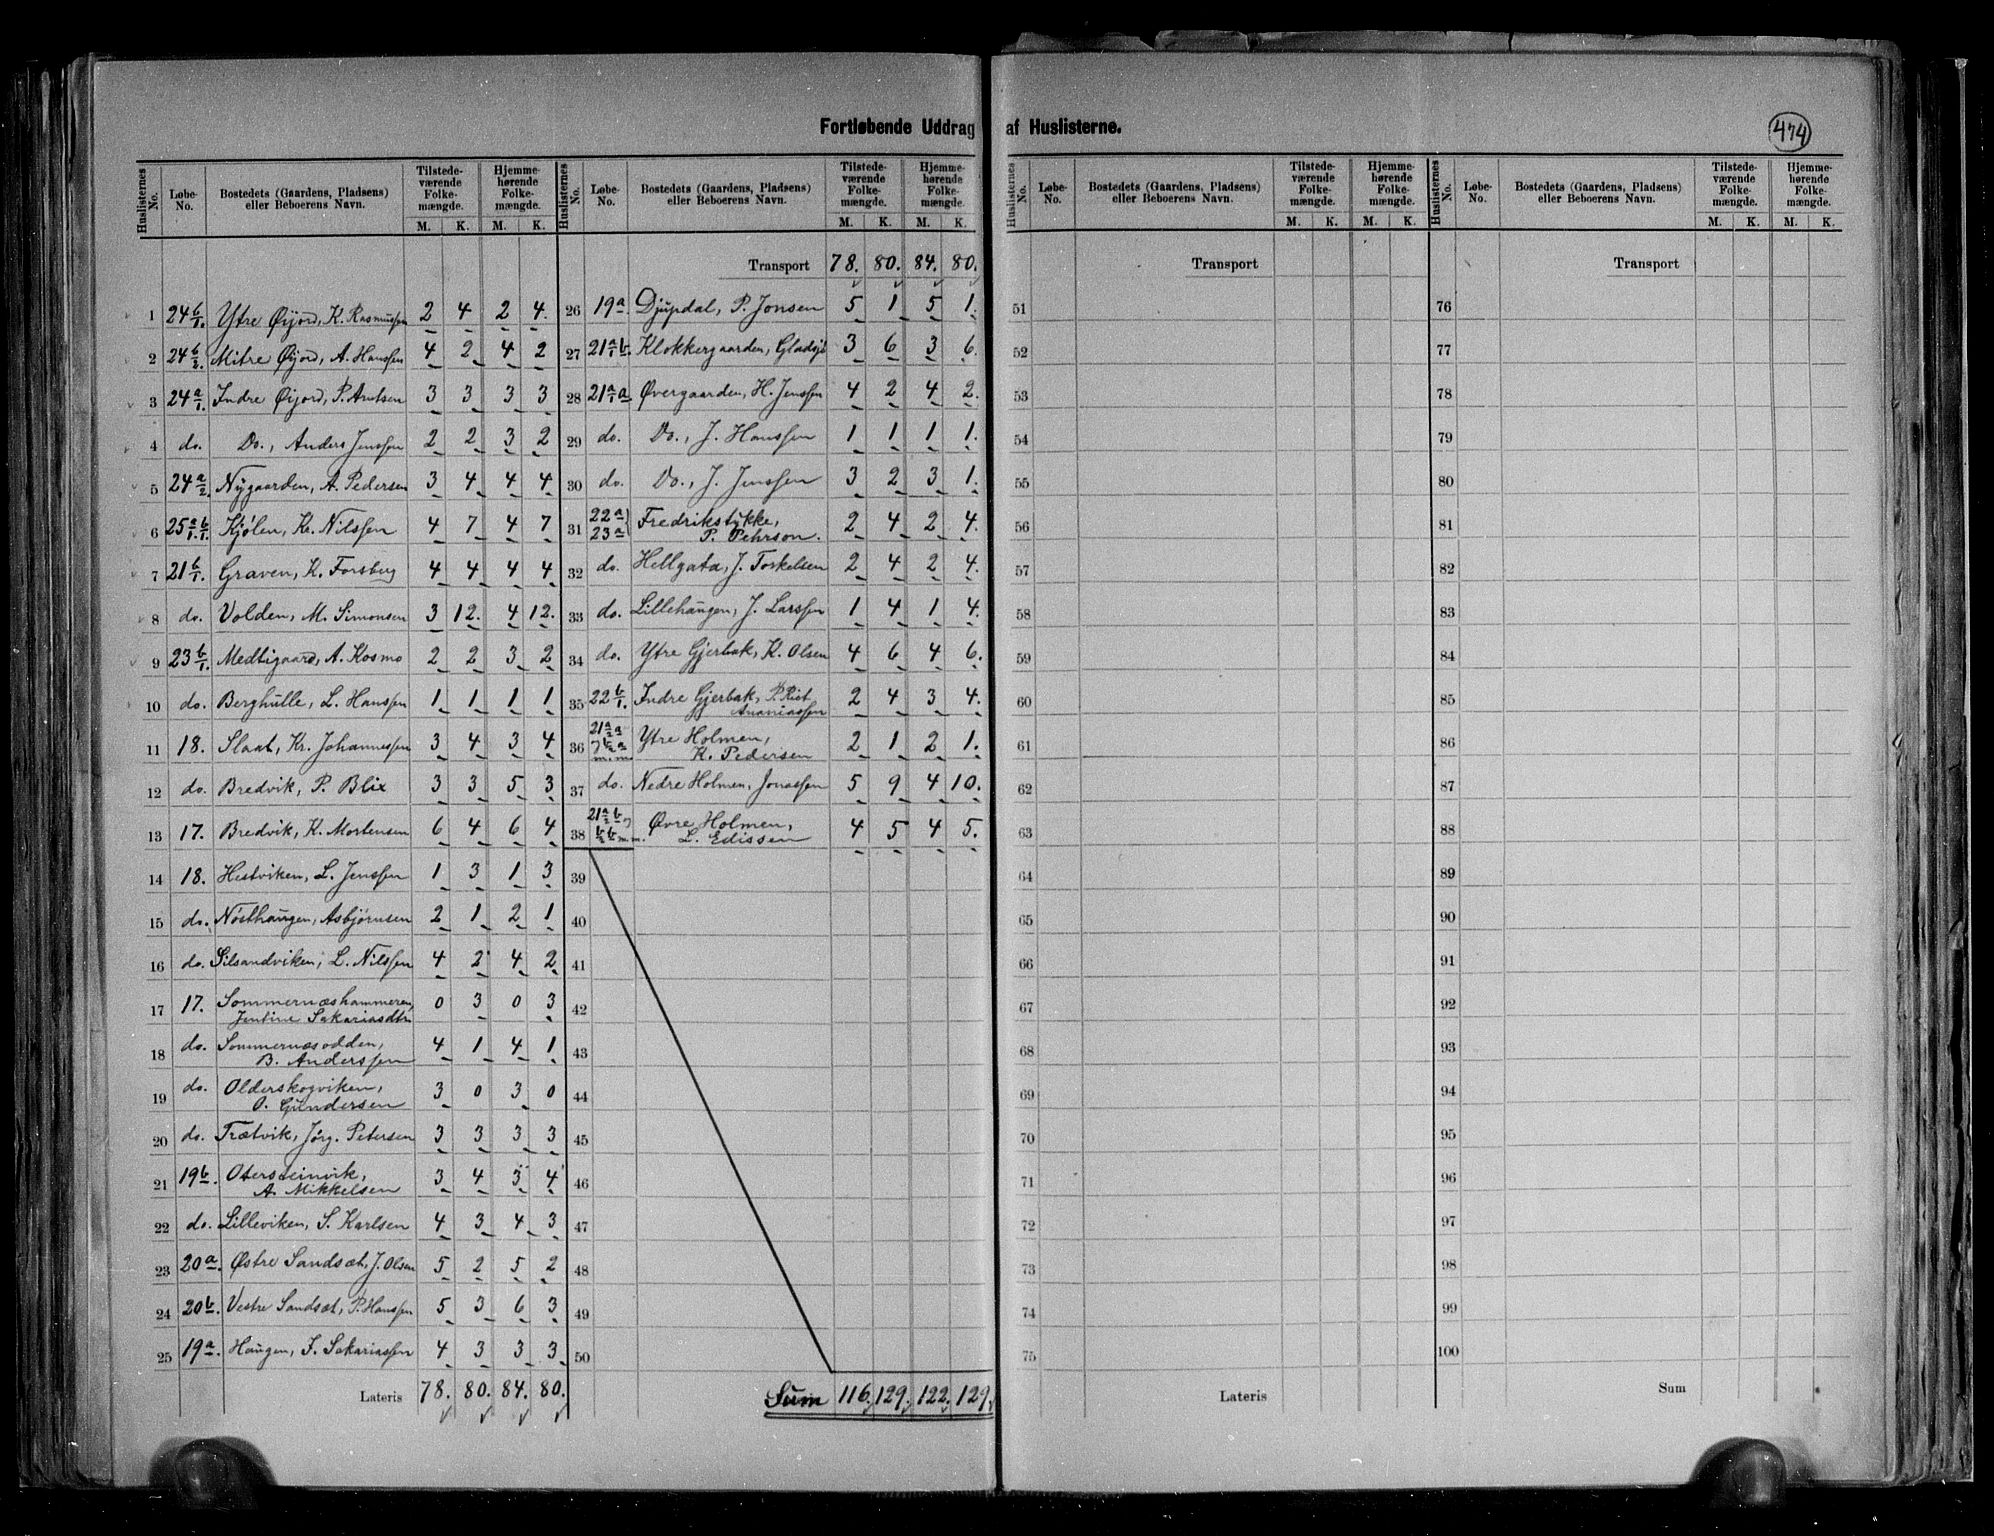 Fortløbende Uddrag af Huslisterne.
474
Huslisternes No. Løbe-No. Bostedets (Gaardens, Pladsens) eller Beboerens Navn. Tilstedeværende Folkemængde. M. K. Hjemmehørende Folkemængde. M. K.
1 24 b/1. Ytre Øijord, K. Rasmussen 2 4 2 4.
2 24 b/2. Mitre Øijord, A. Hanssen 4 2 4 2
3 24 a/1. Indre Øijord, P. Antsen 3 3 3 3
4 do. Do., Anders Jenssen 2 2 3 2
5 24 a/2. Nygaarden, A. Pedersen 3 4 4 4
6 25 Kjölen, Kr. Nilssen 4 7 4 7
7 21 b/1. Graven, K. Forsberg 4 4 4 4
8 do. Volden, M. Simonsen 3 12. 4 12.
9 23 b/1. Medtigaard, A. Kosmo 2 2 3 2
10 do. Berghülle, L. Hanssen 1 1 1 1
11 18. Slaat, Kr. Johannessen 3 4 3 4
12 do. Bredvik, P. Blix 3 3 5 3
13 17. Bredvik, K. Mortensen 6 4 6 4
14 18. Hestviken, L. Jenssen 1 3 1 3
15 do. Nösthaugen, Asbjørnsen 2 1 2 1
16 do. Silsandviken, L. Nilssen 4 2 4 2
17 17. Sommernæshammeren, 0 3 0 3
Jentine Sakariasdtr
18 do. Sommernæsodden, 4 1 4 1
B. Anderssen
19 do. Olderskogviken, 3 0 3 0
O. Gundersen
20 do. Trætvik, Jörg. Petersen 3 3 3 3
21 19 b. Otersteinvik, 3 4 3 4
A. Mikkelsen
22 do. Lilleviken, S. Karlsen 4 3 4 3
23 20 a. Østre Sandsæt, J. Olsen 5 2 5 2
24 20 b. Vestre Sandsæt, P. Hanssen 5 3 6 3
25 19 a. Haugen, J. Sakariassen 4 3 3 3
Lateris 78. 80. 84. 80.
Huslisternes No. Løbe-No. Bostedets (Gaardens, Pladsens) eller Beboerens Navn. Tilstedeværende Folkemængde. M. K. Hjemmehørende Folkemængde. M. K.
Transport 78. 80. 84. 80.
26 19 a Djupdal, P. Jonsen 5 1 5 1.
27 21 a/1 b. Klokkergaarden, Gladsjø 3 6 3 6.
28 21 a/1 a Øvergaarden, H. Jenssen 4 2 4 2.
29 do. Do., J. Hanssen 1 1 1 1.
30 do. Do., J. Jenssen 3 2 3 1.
31 22 a 23 a Fredrikstykke, 2 4 2 4.
P. Pehrson.
32 do. Hellgata, J. Torkelsen 2 4 2 4.
33 do. Lillehaugen, J. Larssen 1 4 1 4.
34 do. Ytre Gjerbak, K. Olsen 4 6 4 6.
35 22 b/1. Indre Gjerbak, P. Rist 2 4 3 4.
Ananiassen
36 Ytre Holmen, 2 1 2 1.
K. Pedersen
37 do. Nedre Holmen, Jonassen 5 9 4 10.
38 Øvre Holmen, 4 5 4 5.
L. Edissen
39
40
41
42
43
44
45
46
47
48
49
50
Sum 116. 129. 122. 129.
Huslisternes No. Løbe-No. Bostedets (Gaardens, Pladsens) eller Beboerens Navn. Tilstedeværende Folkemængde. M. K. Hjemmehørende Folkemængde. M. K.
Transport
51
52
53
54
55
56
57
58
59
60
61
62
63
64
65
66
67
68
69
70
71
72
73
74
75
Lateris
Huslisternes No. Løbe-No. Bostedets (Gaardens, Pladsens) eller Beboerens Navn. Tilstedeværende Folkemængde. M. K. Hjemmehørende Folkemængde. M. K.
Transport
76
77
78
79
80
81
82
83
84
85
86
87
88
89
90
91
92
93
94
95
96
97
98
99
100
Sum